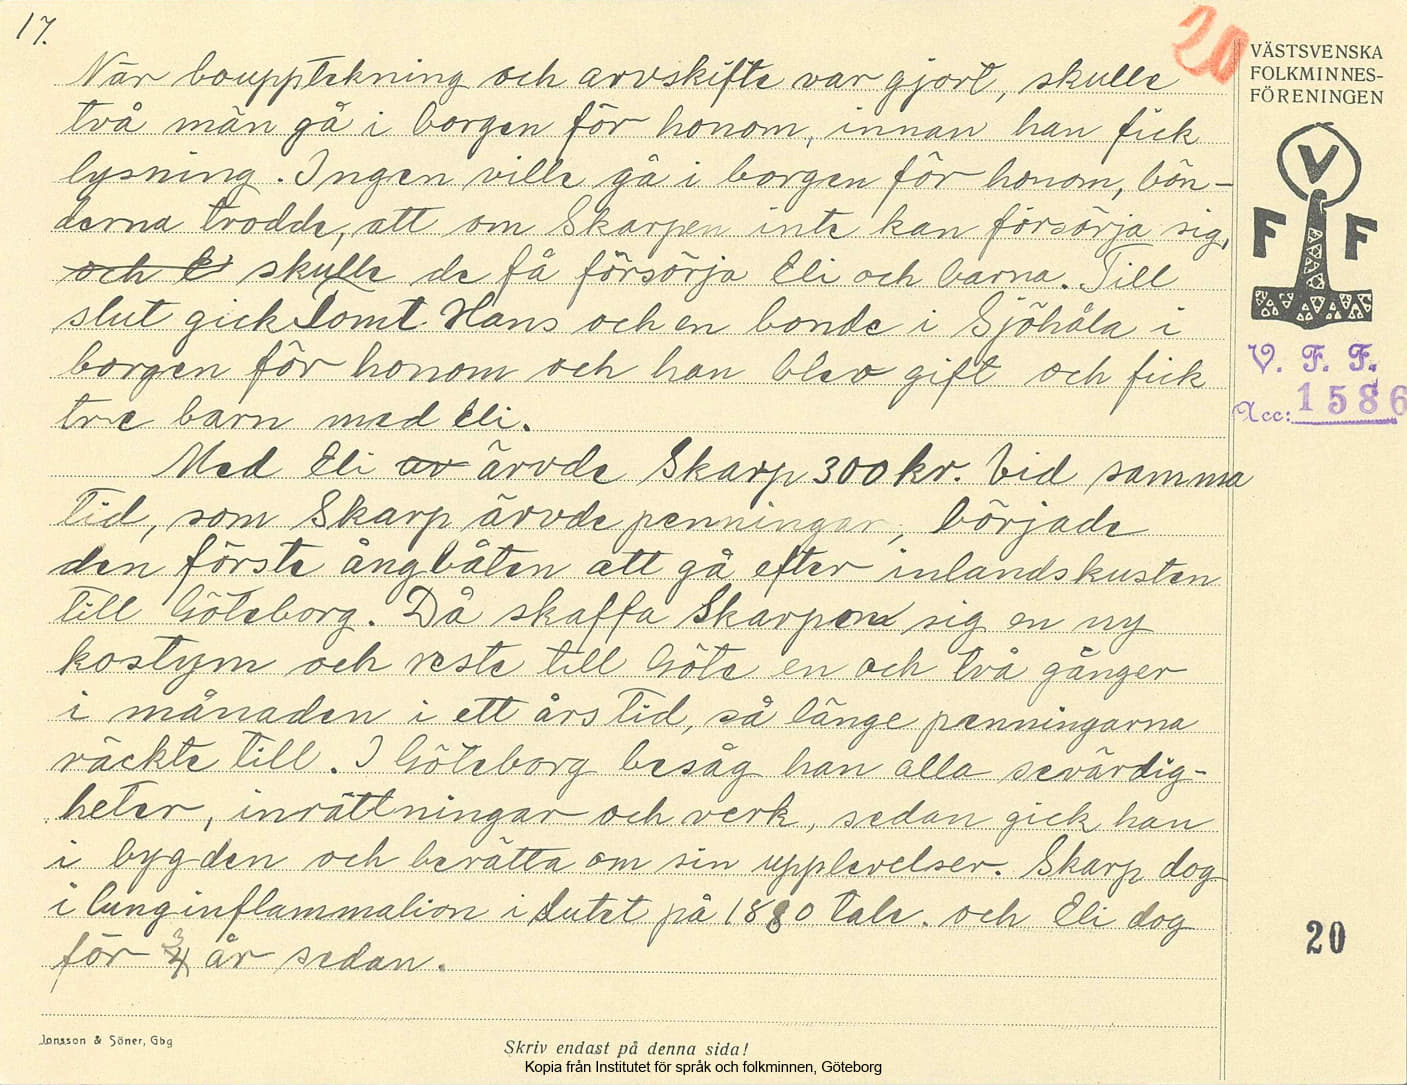 17.
20
VÄSTSVENSKA
FOLKMINNES-
FÖRENINGEN
När bouppteckning och arvskifte var gjort, skulle
två män gå i borgen för honom, innan han fick
lysning. Ingen ville gå i borgen för honom, bön-
derna trodde, att om Skarpen inte kan försörja sig,
och E skulle de få försörja Eli och barna. Till
slut gick Tomt Hans och en bonde i Sjöhåla i
borgen för honom och han blev gift och fick
tre barn med Eli.
Med Eli av ärvde Skarp 300 kr. Vid samma
tid, som Skarp ärvde penningar, började
den förste ångbåten att gå efter inlandskusten
till Göteborg. Då skaffa Skarpen sig en ny
kostym och reste till Göte en och två gånger
i månaden i ett års tid, så länge penningarna
räckte till. I Göteborg besåg han alla sevärdig-
heter, inrättningar och verk, sedan gick han
i bygden och berätta om sin upplevelser. Skarp dog
i lunginflammation i slutet på 1880 tale. och Eli dog
för 3/4 år sedan.
V
F F
V. F. F.
Acc: 1586
20
Jonsson & Söner, Gbg
Skriv endast på denna sida!
Kopia från Institutet för språk och folkminnen, Göteborg